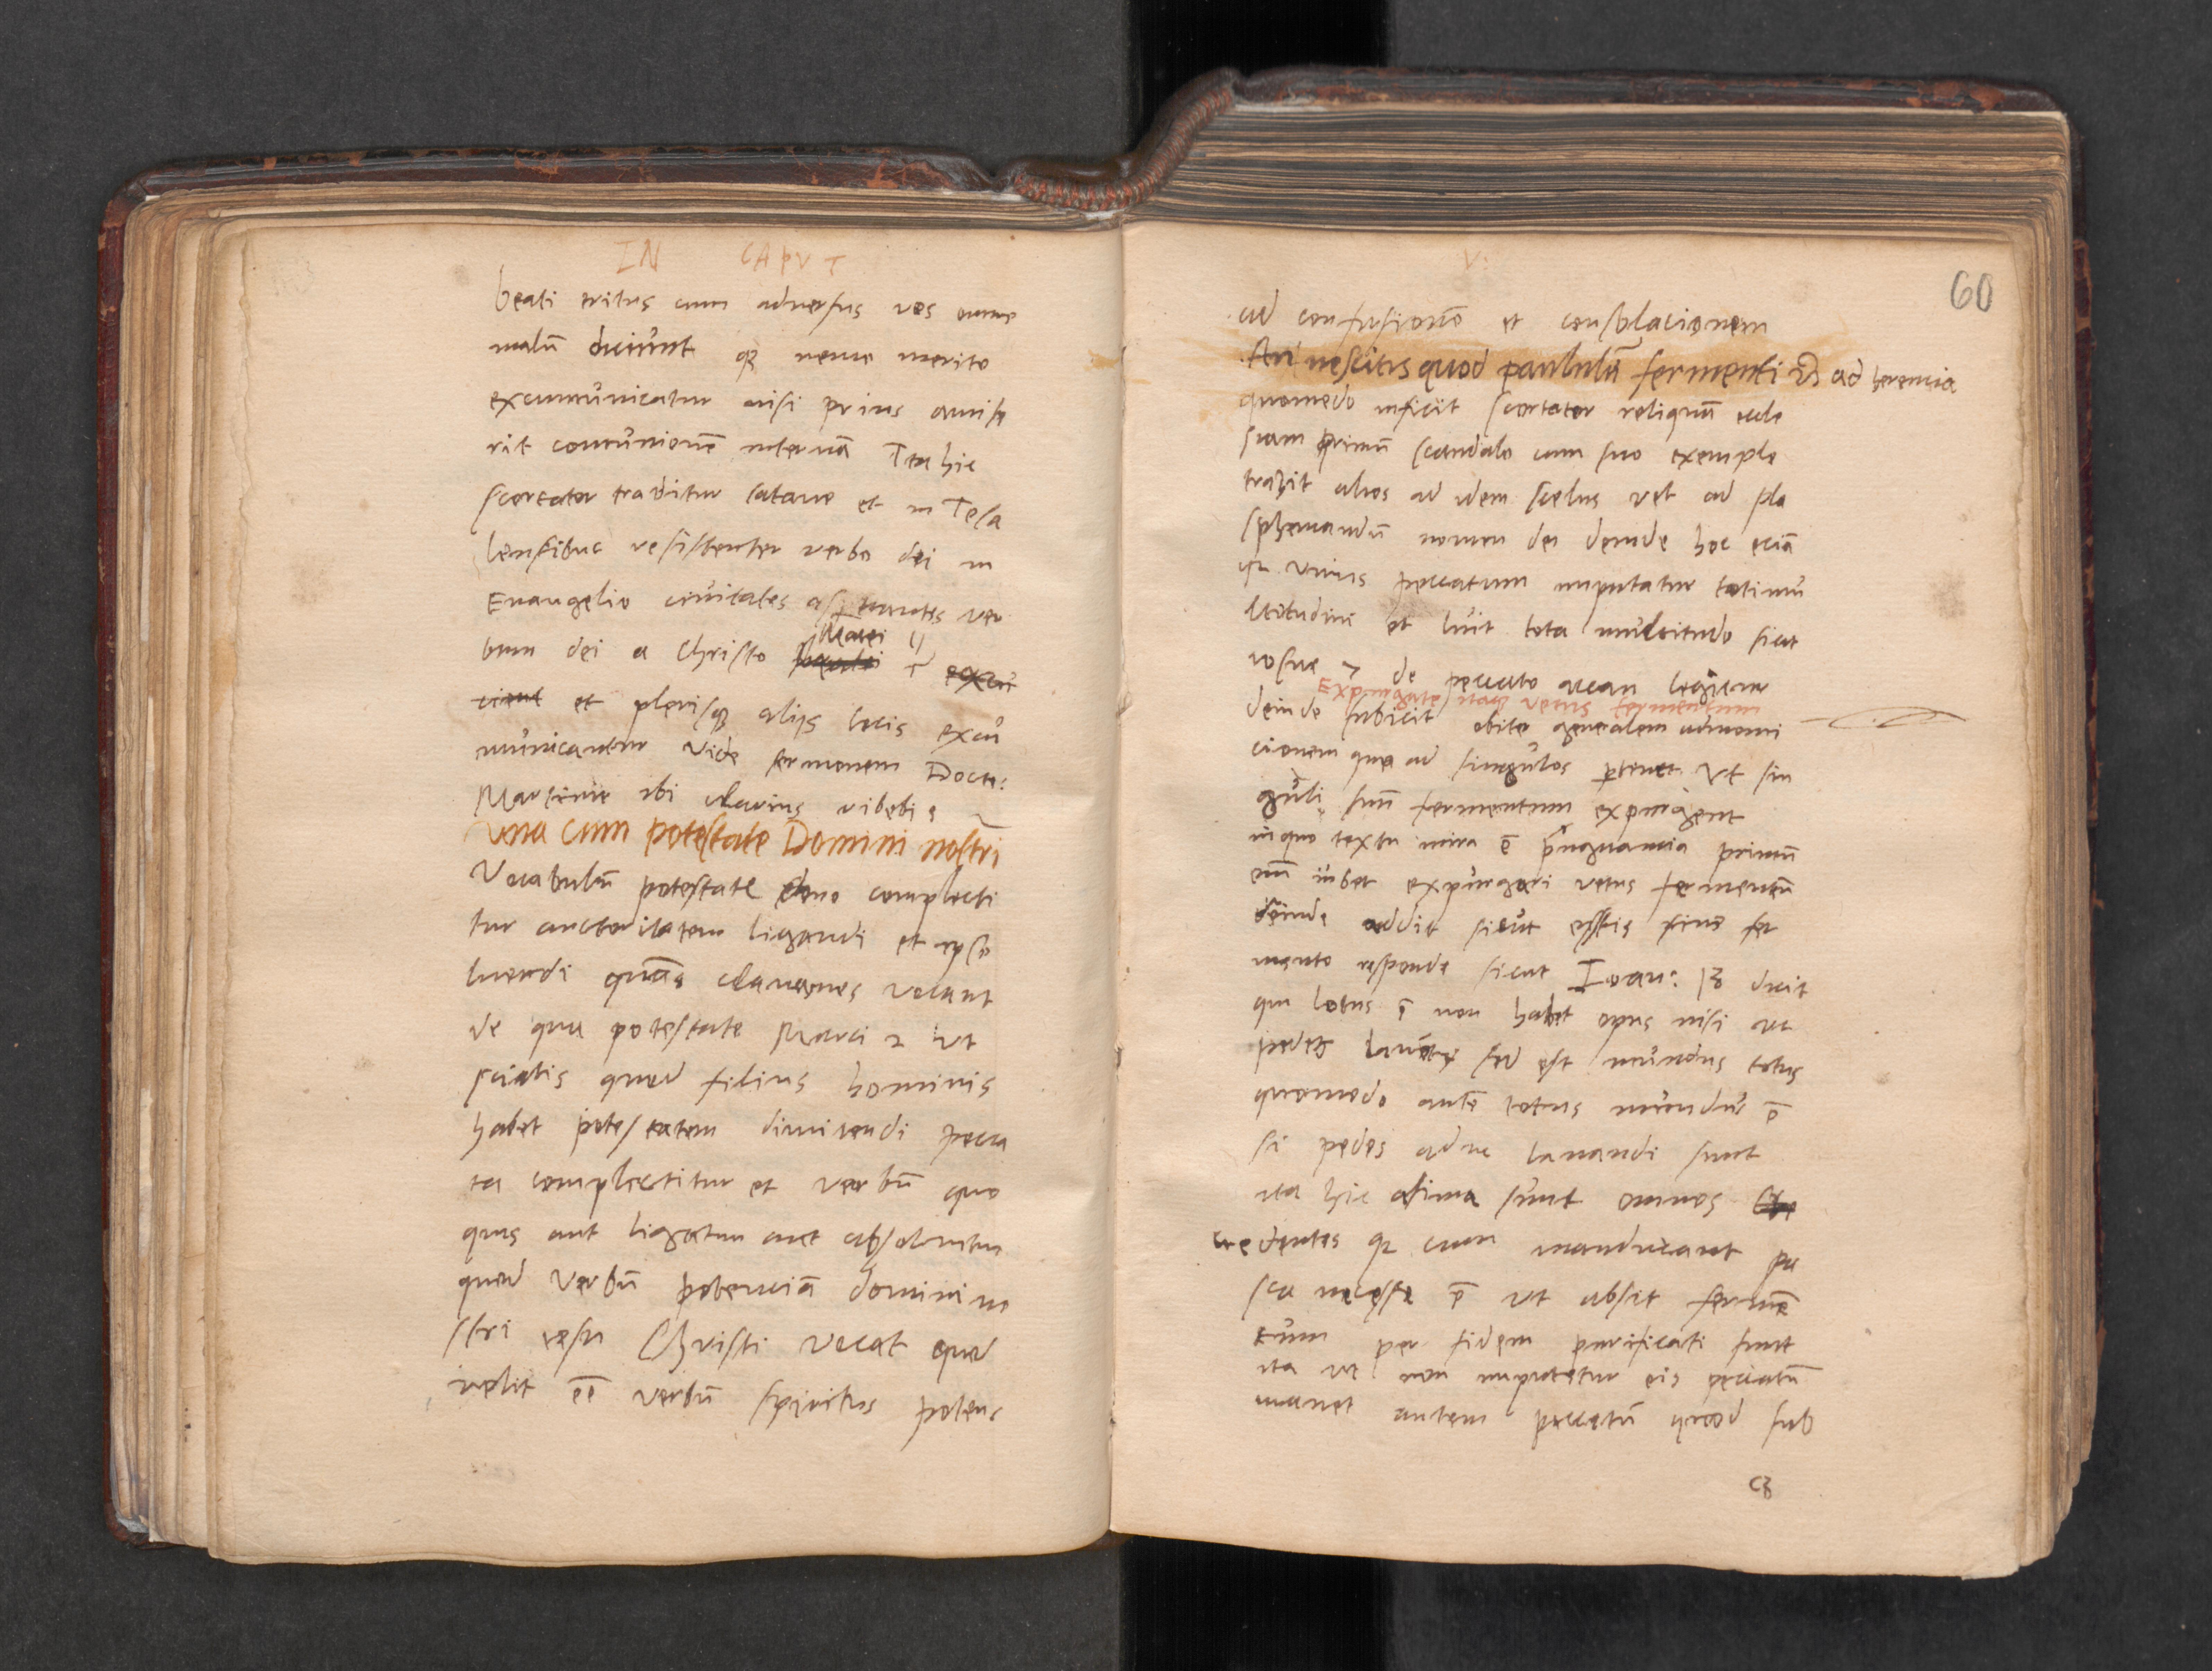 IN CAPVT
beati eritis cum aduersus vos omne
malū dicunt qz nemo merito
excumunicatur nisi prius amise
rit comunionē internā Ita hic
scortator traditur satane et in Tesa
lensibus resistenter verbo dei in
Euangelio ciuitates asp verbantes ver
Marci 11
bum dei a Christo
et plerisqz alijs locis excū
municantur vide sermonem Doct:
Martini ibi clarius videbis
vna cum potestate Domini nostri
Vocabulū potestate complecti
tur auctoritatem ligandi et apso
luendi quās claues vocant
de qua potestate Marci 2 vt
sciatis quod filius hominis
habet potestatem dimitendi pecca
ta complectitur et verbū quo
quis aut ligatur aut absoluitur
quod verbū potenciā domini no
stri iesu Christi vocat quod
velit eē verbū spiritus potens
V:
60
ad confusionē et consolacionem
An nescitis quod paululū fermenti ad heremia
quomodo inficit scortator reliquā eccle
siam primū scandalo cum suo exemplo
trahit alios ad idem scelus vel ad pla
sphemandū nomen dei deinde hoc eciā
qz vnius peccatum imputatur toti mu
ltitudini et luit tota multitudo sicut
iosue 7 de peccato acan legitur
Expurgate itaqz vetus fermentum
deinde subicit obiter generalem admoni
cionem quæ ad singulos ptinet vt sin
guli suū fermentum expurgent
in quo textu mira ē pugnancia primū
enī iubet expurgari vetus fermentū
deinde addit sicut estis sine fer
mento responde sicut Ioan: 13 dicit
qui lotus ē non habet opus nisi vt
pedes lauet sed est mundus totus
quomodo autē totus mundus ē
si pedes adhuc lauandi sunt
ita hic asima sunt omnes
credentes qz cum manducant pa
sca necesse ē vt absit fermē
tum per fidem purificati sunt
ita vt non imputetur eis peccatū
manet autem peccatū quod sub